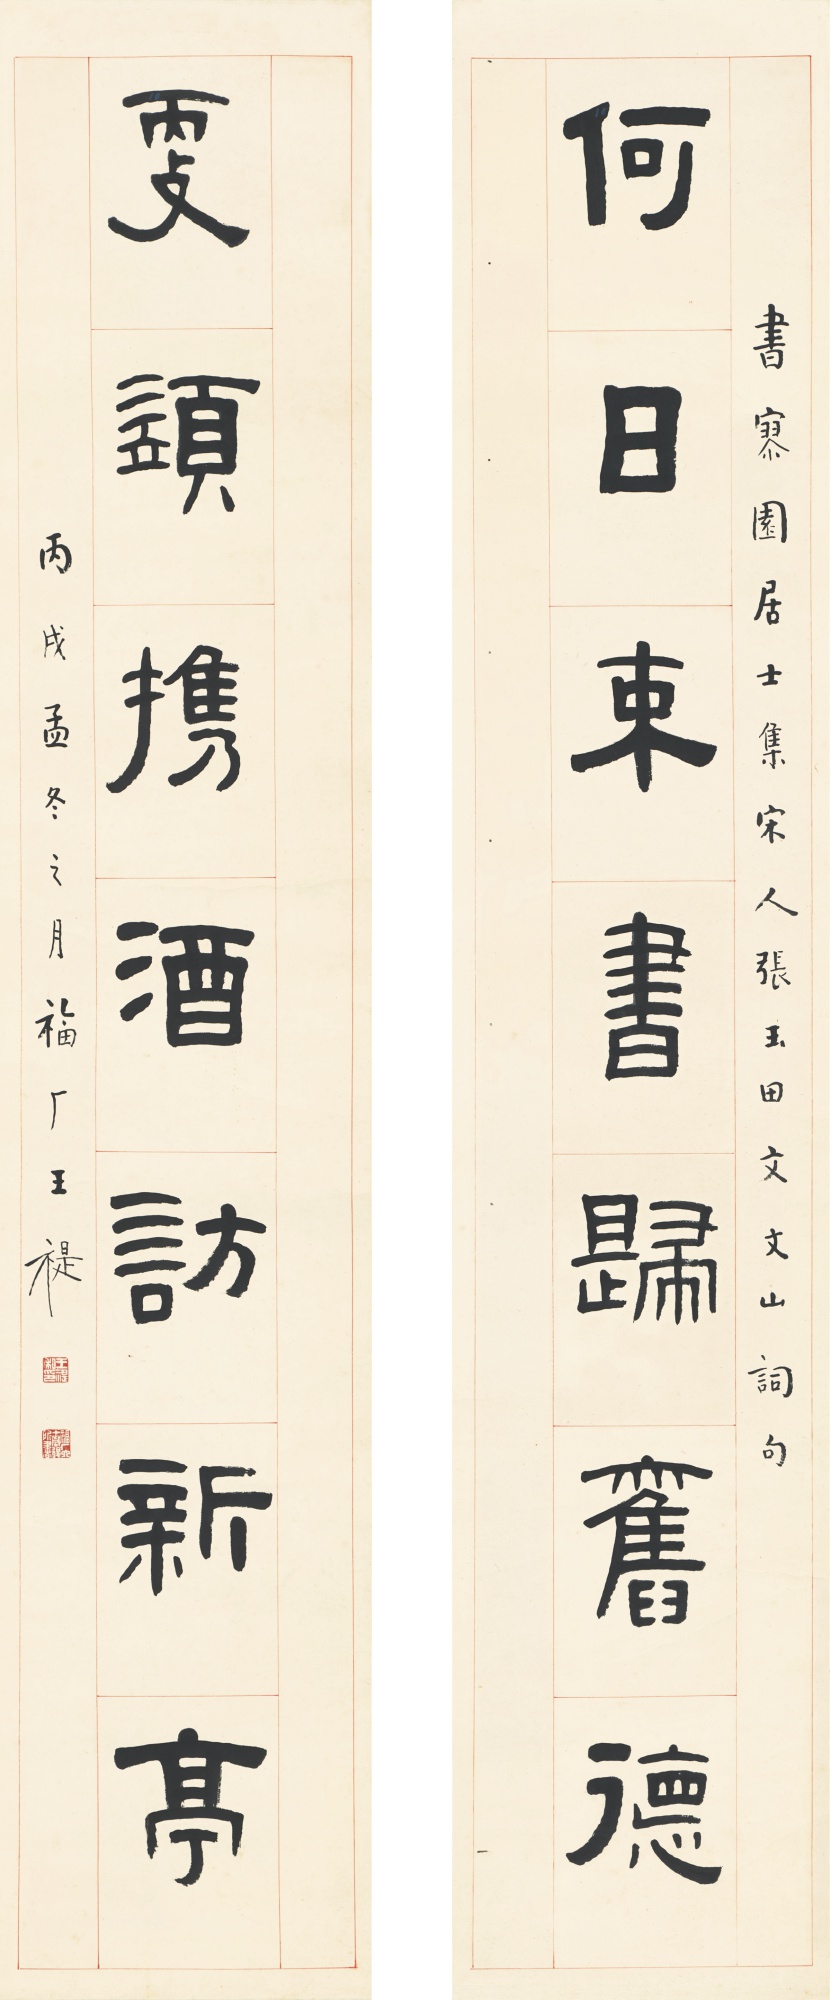 何日束書歸舊德
書園居士集宋人張玉田文文山詞句
更須携酒訪新亭
丙戌孟冬之月福厂王禔